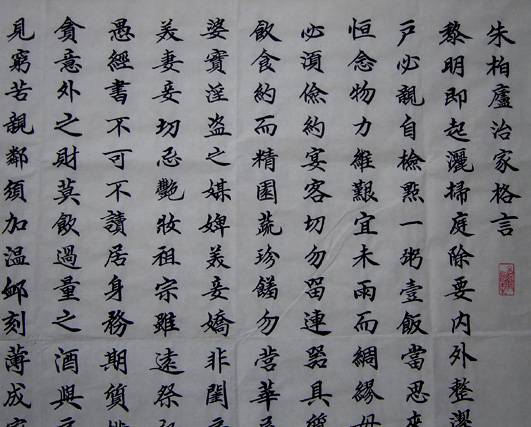 朱柏廬治家格言
黎明即起灑掃庭除要内外整潔
戶必親自檢點一粥壹飯當思來
恒念物力維艱宜未雨而綢繆毋
必須儉約宴客切勿留連器具質
飲食約而精園蔬珍饈勿營華
婆實淫盜之媒婢美妾嬌非閨
美妻妾切忌艷妝祖宗雖遠祭
愚經書不可不讀居身務期質
貪意外之財莫飲過量之酒與
見窮苦親鄰須加温卹刻薄成家